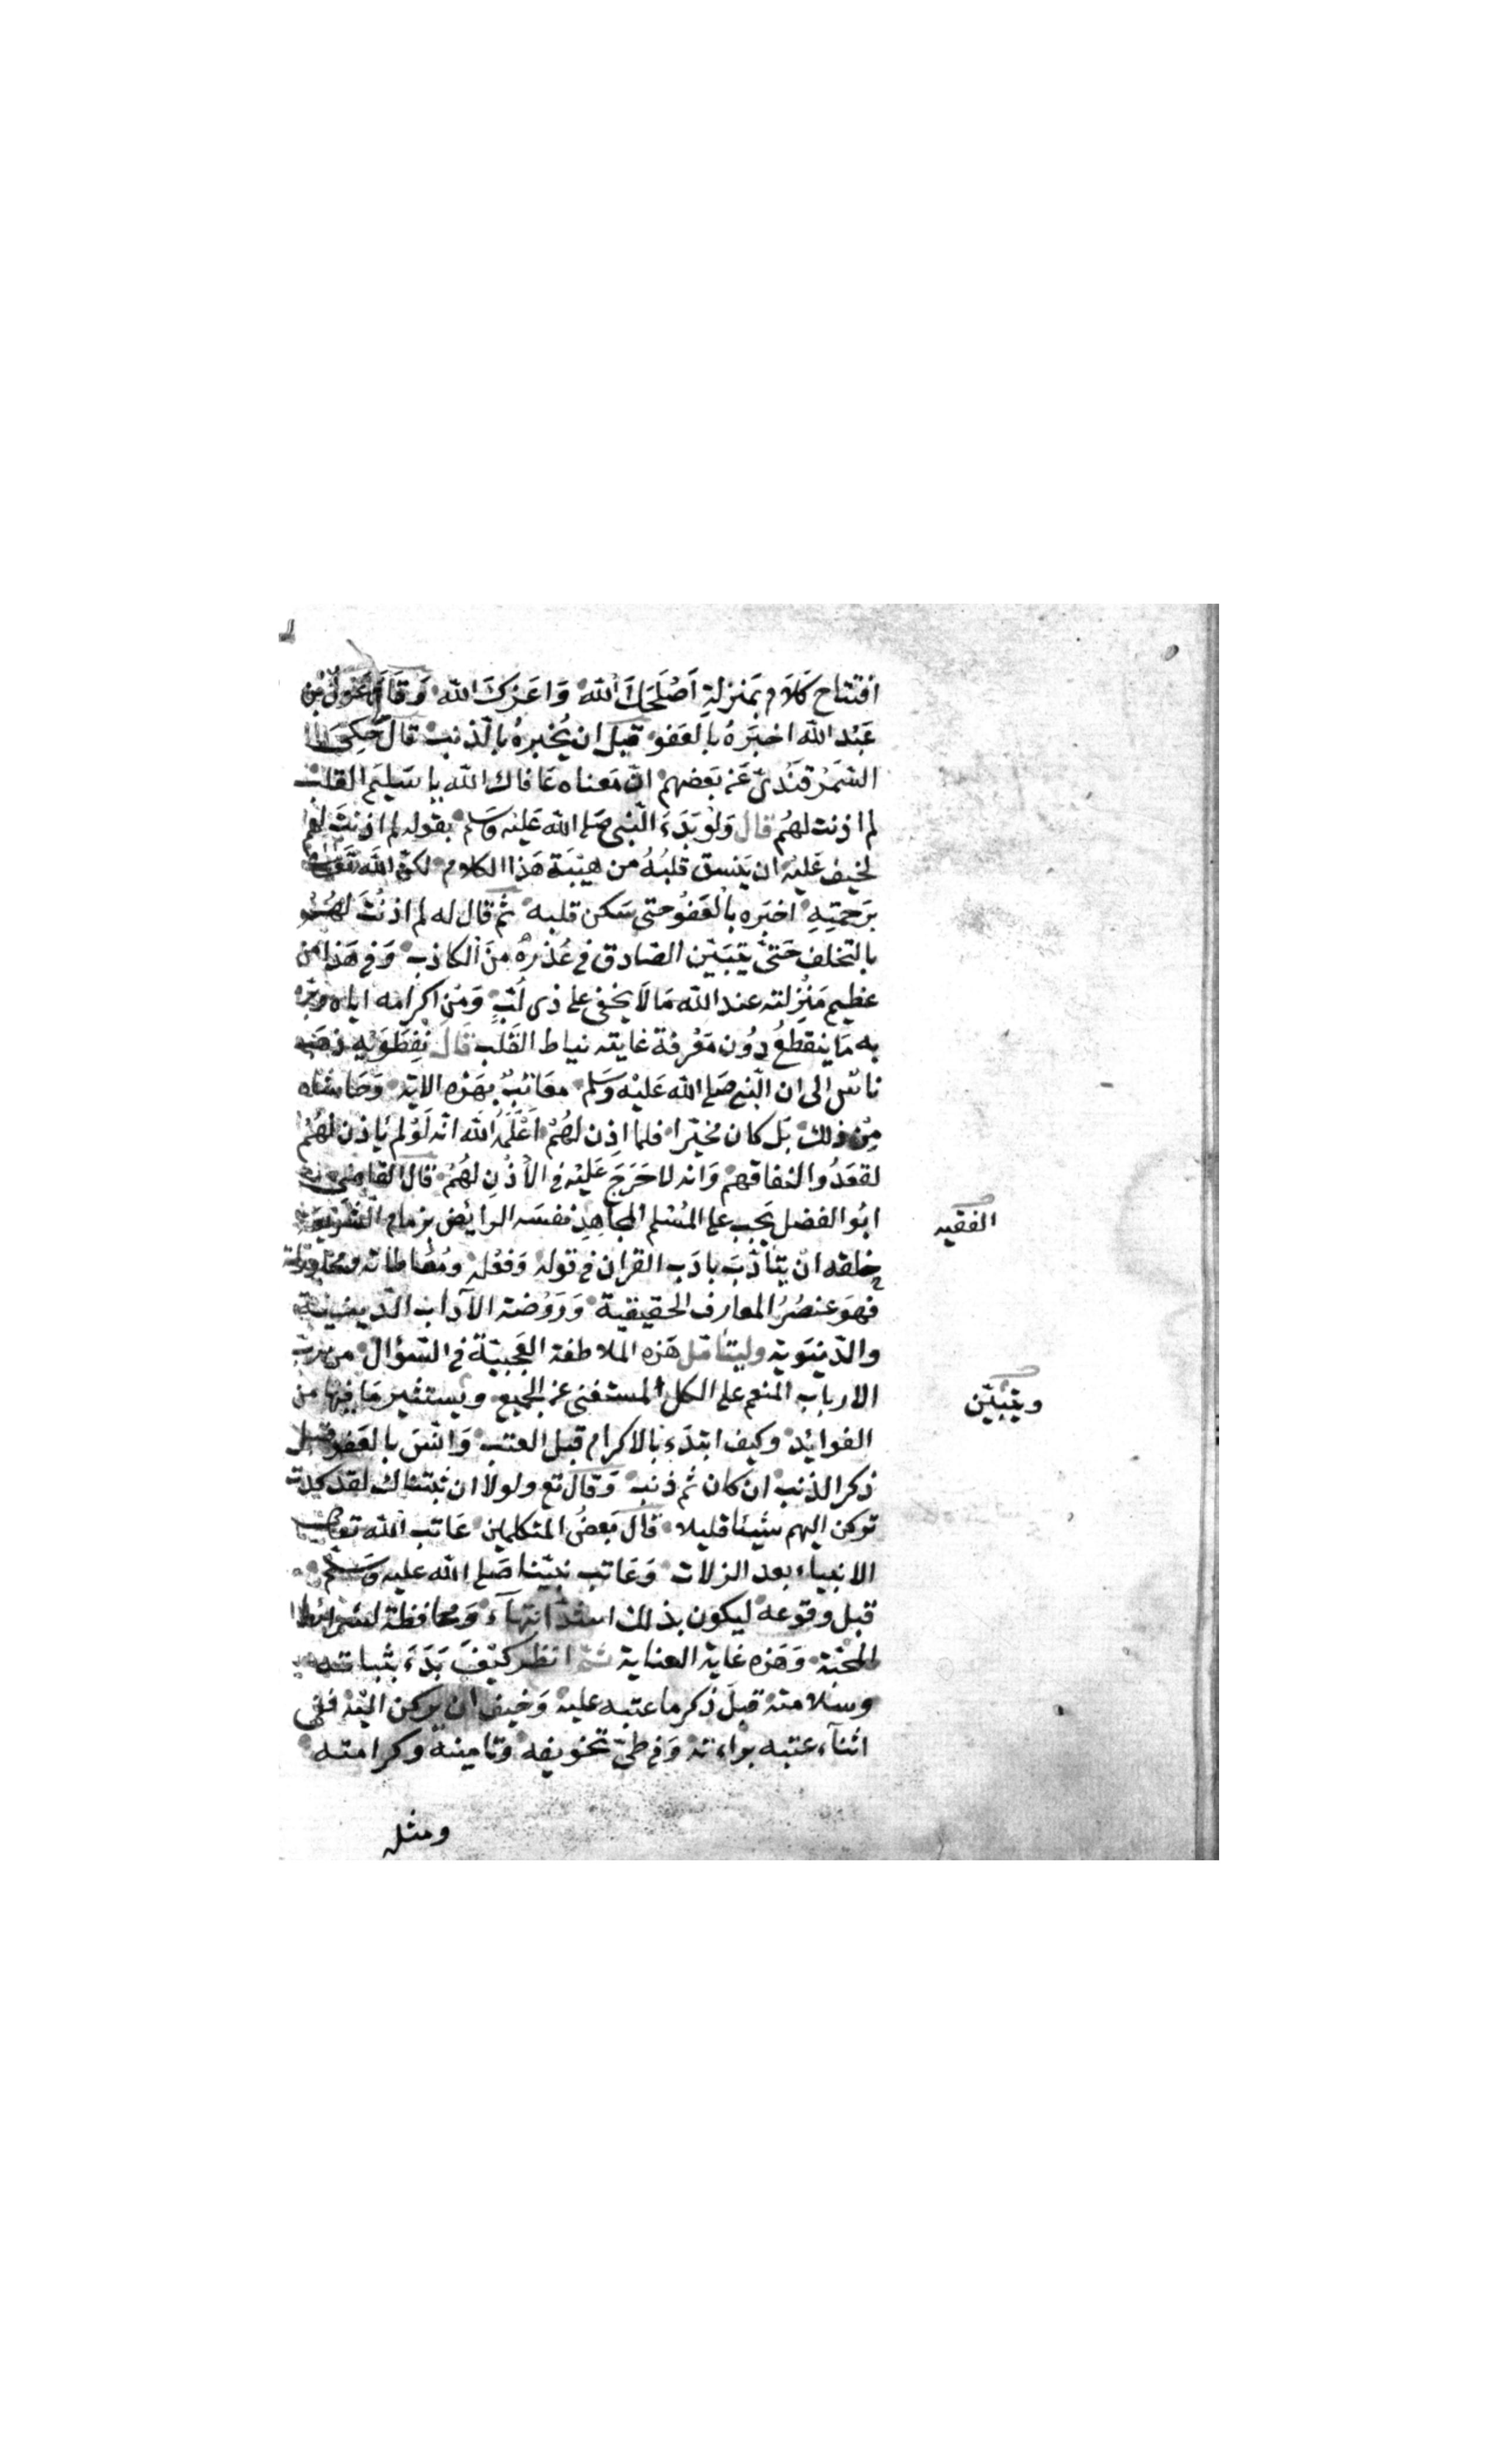 افتتاح كَلَام بمَنزلةِ اَصْلَحَكَ الله وَاعَزكَ الله وَقَالَ عَوْن بْن
عَبْد الله اخبَرهُ بالعَفو قبل ان يُخبرهُ بالذنب قال حَكِىَ
السّمَرْقَنْدىّ عَن بَعضهم انّ مَعناه عَافاك الله يا سَليمَ القلب
لم اذنت لهُم قال وَلوْ بَدَءَ النّبى صَلى الله عَليْه وَسَلم بقوله لم اذنت لهم
لخيف عَليْه ان يَنسق قلبُهُ من هيْبَة هَذا الكلام لكن الله تعَالى
برَحمَتِهِ اخبَره بالْعَفوُ حتى سَكن قلبه ثم قال له لم اذنْتَ لهُمْ
بالتخلف حَتىّ يتبَيّن الصّادق في عُذرهُ منَ الكاذب وَفي هَذا من
عظيم مَنْزلته عند الله مَا لَا يخفى على ذى لُبّ وَمنْ اكرامه اياه وبرّه
به مَا ينقطعُ دوُن مَعْرفة غايته نياط القَلب قَالَ نِفطَوَيْه ذهَب
ناسٌ الى ان النّبى صَلى الله عَليْه وَسَلم معَاتبٌ بهَذه الاية وَحَاشاه
مِنْ ذلك بَل كان مُخيّرا فلما اذِن لهُمْ اَعْلَمَهُ الله انّه لَوْ لم يَاذن لهُمْ
لقعَدُوا لنفاقهم وَانه لا حَرَجَ عَليْه في الاْذْنِ لهُمْ قال القاضى
ابُو الفضل يَجب على المُسْلم المجاهِدِ نفسَه الرايُض بزمام الشريعَة
خلقه انْ يتَأدّبَ بادَب القرآن في قوله وَفعْله ومُعَاطاته ومحاوراته
فهوَ عنصُرُ المعارف الحقيقية وَرَوْضة الآداب الدّينيّة
والدّنيَوية وليتأمّل هَذه الملاطفة العَجيبَة في السّؤال من ربّ
الارباب المنعم على الكل المستغنى عن الجميع ويستثير مَا فيهَا من
الفوائد وكيف ابتدَء بالاكرام قبل العتب وَانسَ بالعَفو قبل
ذكر الذنب ان كان ثم ذنب وَقال تع ولولا ان ثبّتناك لقد كدت
تركن اليهم شيئا قليلا قال بَعضُ المتكلمين عَاتب الله تعالى
الانبياء بعد الزلات وَعَاتب نبيّنا صَلى الله عليه وَسَلم
قبل وقوعه ليكون بذلك اشدّ انتهآء وَمحافظة لشرائط
المحبّة وَهَذه غاية العناية ثمّ انظر كيْفَ بَدَءَ بثباته
وسلامته قبلَ ذكر ما عتبه عليه وَخيف ان يركن اليْه ففى
اثنآء عتبه برْاءته وَفي طىّ تخويفه وتامينه وكرامته
ومثله
الفقيه
ويتبيّن